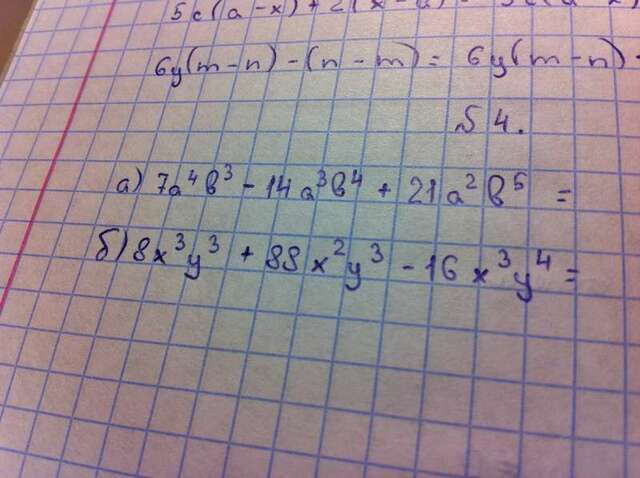 5c(a-x)+2(x-a)
6y(m-n)-(n-m)= 6y(m-n)
№ 4.
а) 7a⁴b³ - 14a³b⁴ + 21a²b⁵ =
б) 8x³y³ + 88x²y³ - 16x³y⁴ =